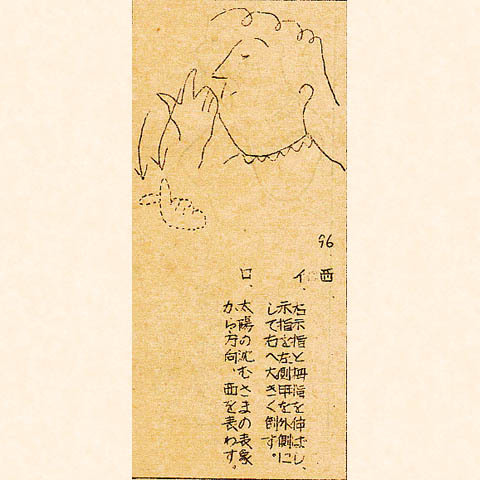 96
西
イ、右示指と拇指を伸ばし、
示指を左側甲を外側に
して右へ大きく倒す。
ロ、太陽の沈むさまの表象
から方向、西を表わす。